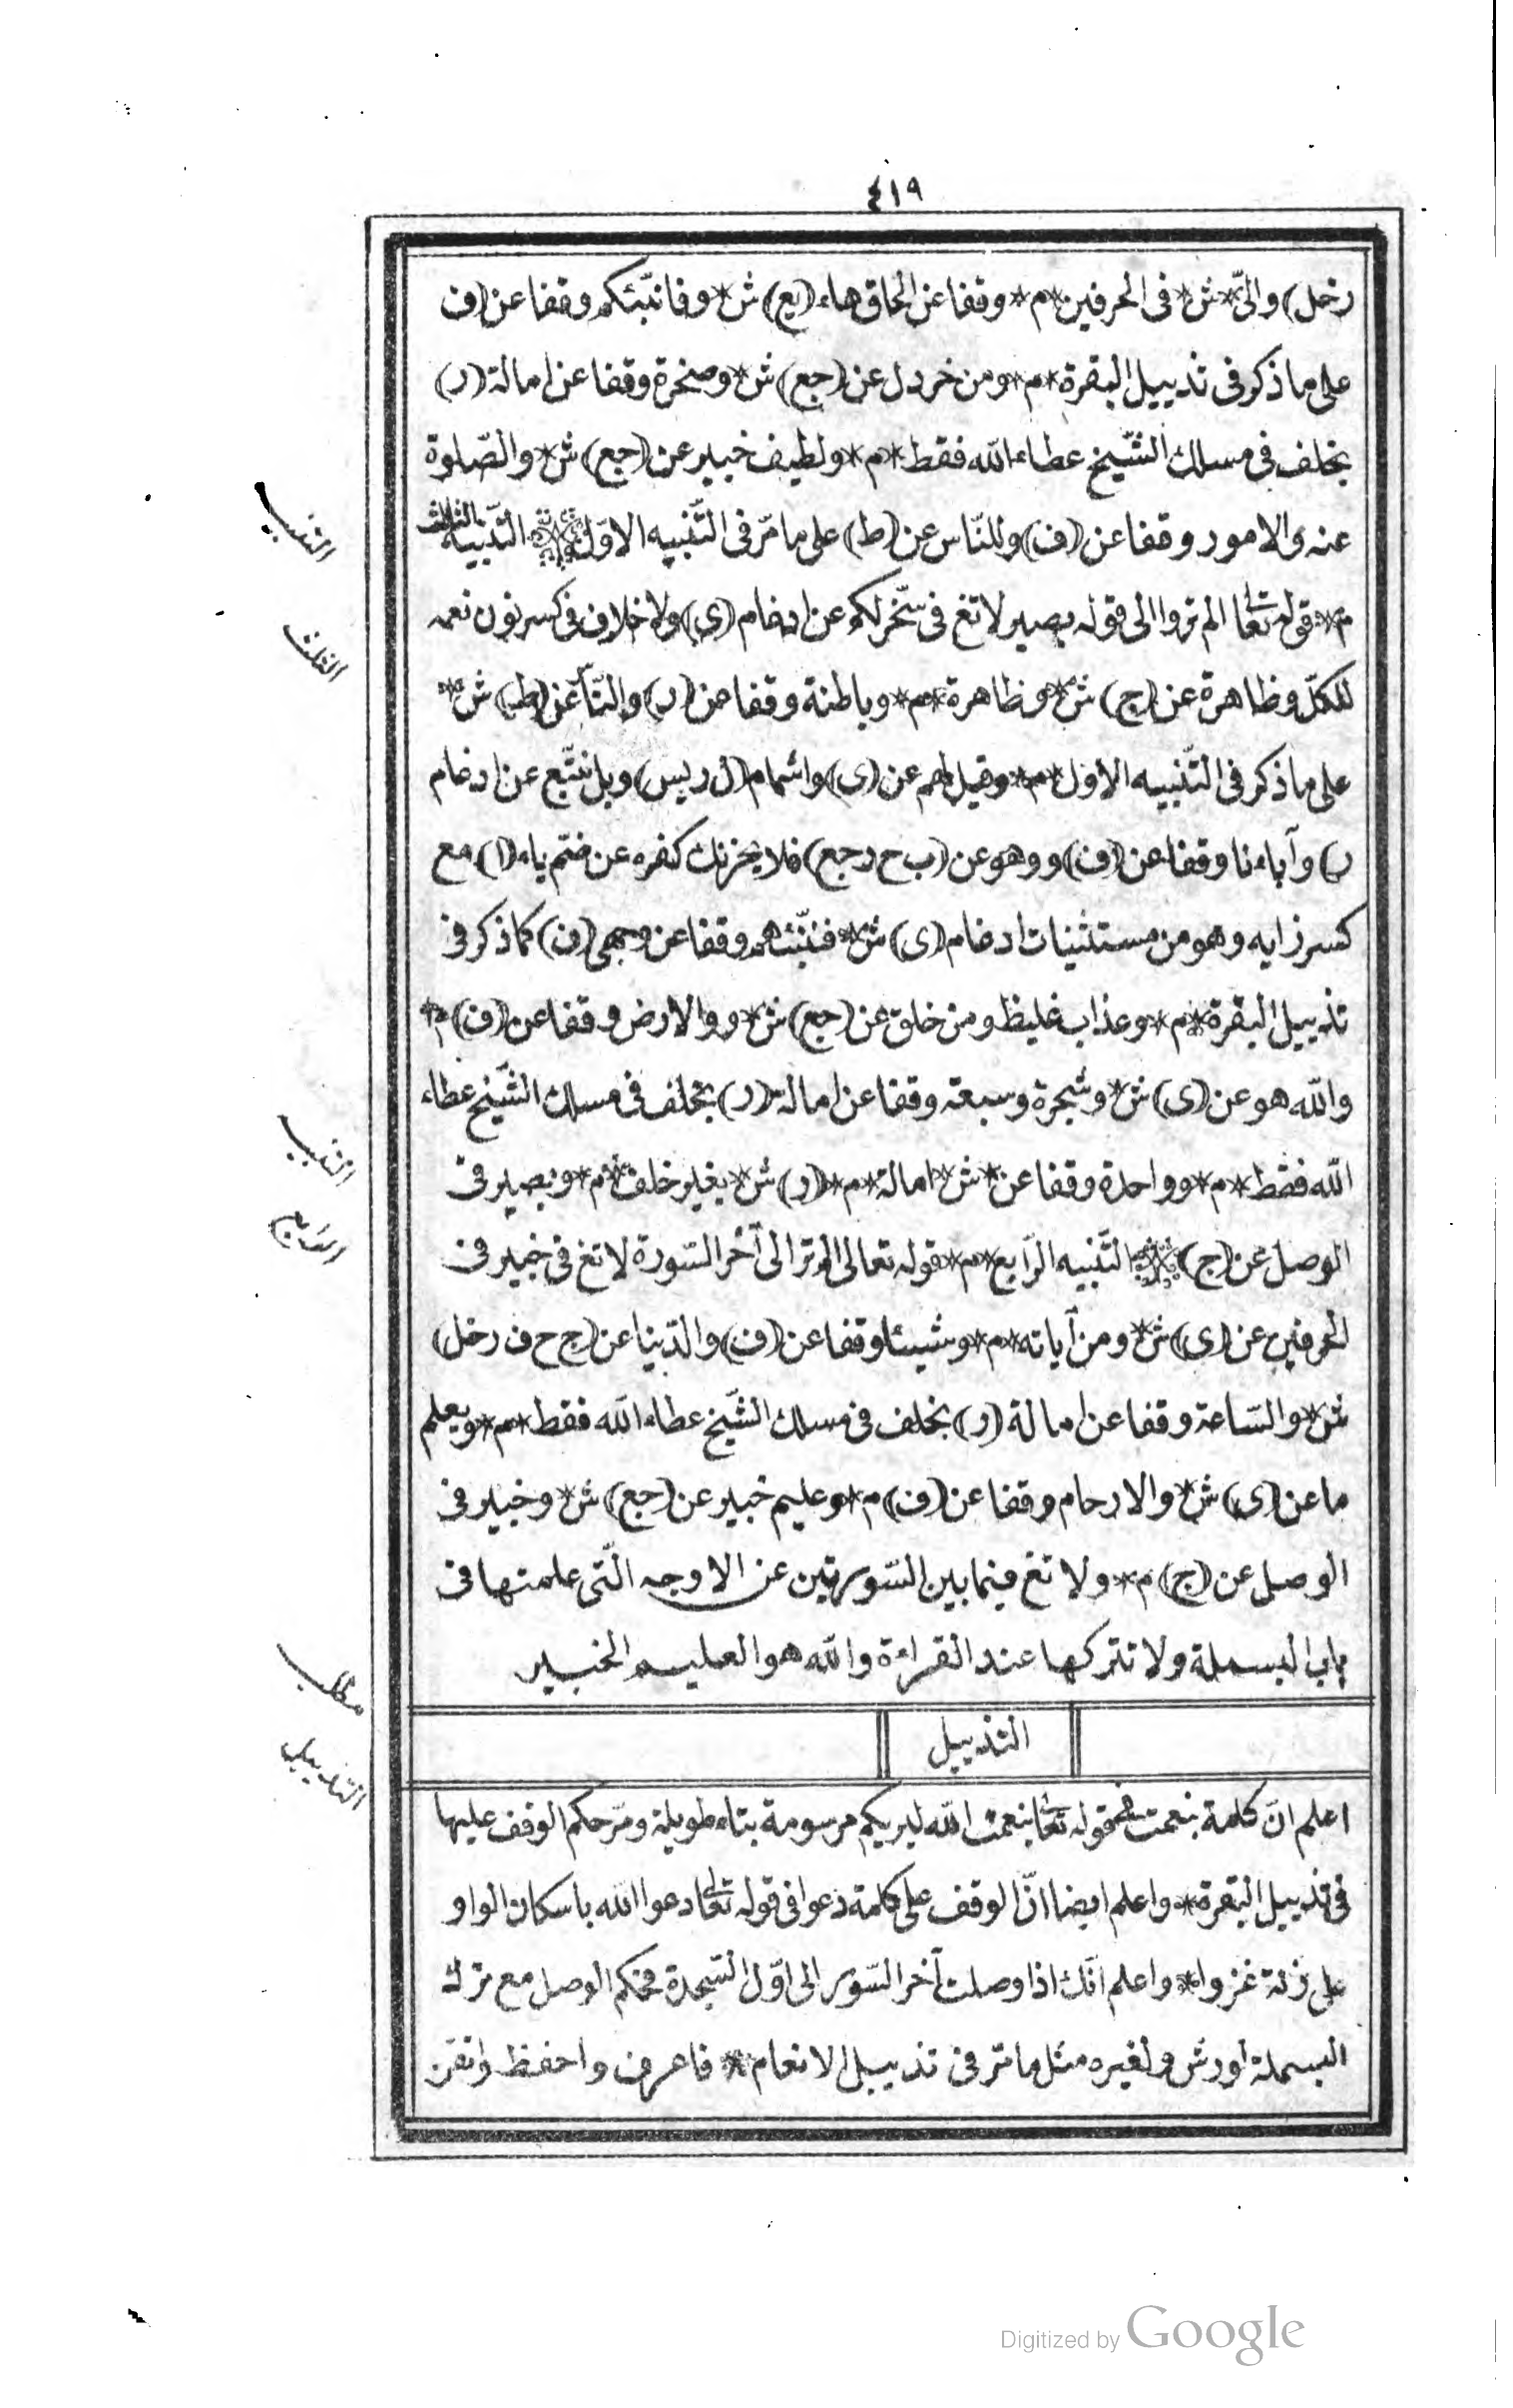 ٤١٩
رخل) والىّ * ش * فى الحرفين * م * وقفا عن الحاق هاء (يع) ش * وفانبّئكم وقفا عن (ف
على ما ذكر فى تذييل البقرة * م * ومن خردل عن (جع) ش * وصخرة وقفا عن امالة (ر)
بخلف فى مسلك الشّيخ عطاء الله فقط * م * ولطيف خبير عن (جع) ش * والصّلوة
عنه والامور وقفا عن (ف) وللنّاس عن (ط) على ما مرّ فى التّنبيه الاوّل التّنبيه الثالث
م * قوله تعالى الم تروا الى قوله بصير لا تغ فى سخّر لكم عن ادغام (ى) ولا خلاف فى كسر نون نعمه
للكلّ وظاهرة عن (ج) ش * وظاهرة * م * وباطنة وقفا عن (ر) والنّاس عن (ط) ش *
على ما ذكر فى التّنبيه الاول * م * وقيل لهم عن (ى) واشمام (ل ر يس) وبل نتّبع عن ادغام
ر) وآباءنا وقفا عن (ف) ووهو عن (ب ح ر جع) فلا يحزنك كفره عن ضمّ ياء (ا) مع
كسر زايه وهو من مستثنيات ادغام (ى) ش * فننبّئهم وقفا عن وجهى (ف) كما ذكر فى
تذييل البقرة * م * وعذاب غليظ ومن خلق عن (جع) ش * ووالارض وقفا عن (ف) م *
والله هو عن (ى) ش * وشجرة وسبعة وقفا عن امالة (ر) بخلف فى مسلك الشّيخ عطاء
الله فقط * م * وواحدة وقفا عن * ش * امالة * م * (ر) ش * بغير خلف * م * وبصير فى
الوصل عن (ج) التّنبيه الرّابع * م * قوله تعالى الم تر الى آخر السّورة لا تغ فى خبير فى
الحرفين عن (ى) ش * ومن آياته * م * وشيئا وقفا عن (ف) والدّنيا عن (ج ح ف رخل)
ش * والسّاعة وقفا عن امالة (ر) بخلف فى مسلك الشّيخ عطاء الله فقط * م * ويعلم
ما عن (ى) ش * والارحام وقفا عن (ف) م * وعليم خبير عن (جع) ش * وخبير فى
الوصل عن (ج) م * ولا تغ فيما بين السّورتين عن الاوجه الّتى علمتها فى
باب البسملة ولا تتركها عند القراءة والله هو العليم الخبير
التذييل
اعلم انّ كلمة بنعمت فى قوله تعالى بنعمت الله ليريكم مرسومة بتاء طويلة ومرّ حكم الوقف عليها
فى تذييل البقرة * واعلم ايضا انّ الوقف على كلمة دعوا فى قوله تعالى دعوا الله باسكان الواو
على زنة غزوا * واعلم انّك اذا وصلت آخر السّور الى اوّل السّجدة فحكم الوصل مع ترك
البسملة لورش ولغيره مثل ما مرّ فى تذييل الانعام * فاعرف واحفظ واتقن
التنبيه
الثالث
التنبيه
الرابع
مطلب
التذييل
Digitized by Google